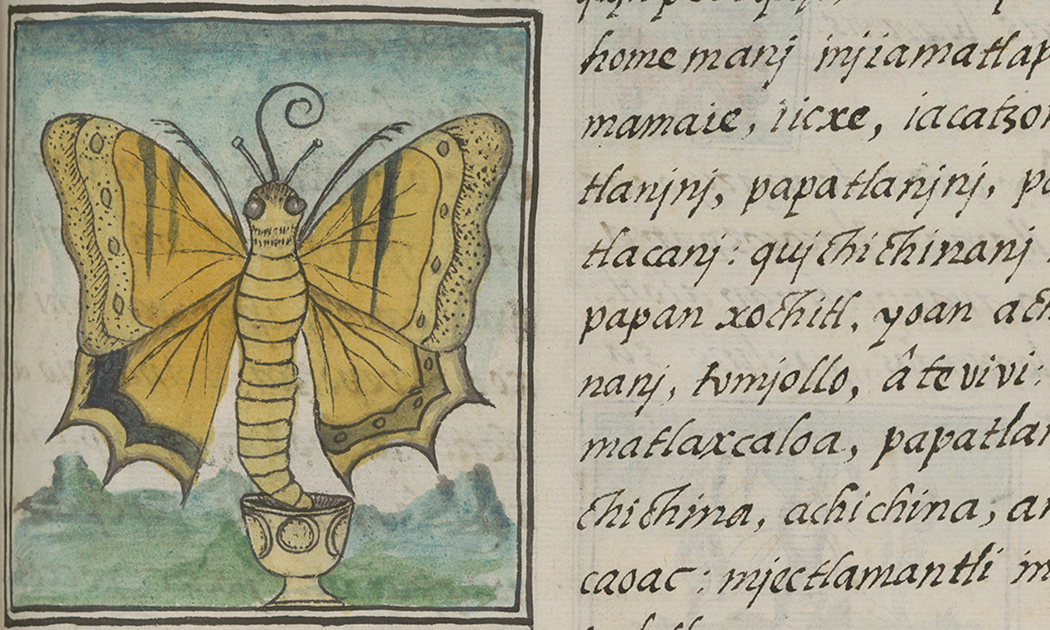 home manj injiamatlap
mamaie, iicxe, iacatzon
tlanjnj, papatlanjnj, pa
tlacanj: qujchichinanj
papan xochitl, yoan ach
nanj, tomjollo, âtevivi:
matlaxcaloa, papatlan
chichina, achichina, an
caoac: mjectlamantli in